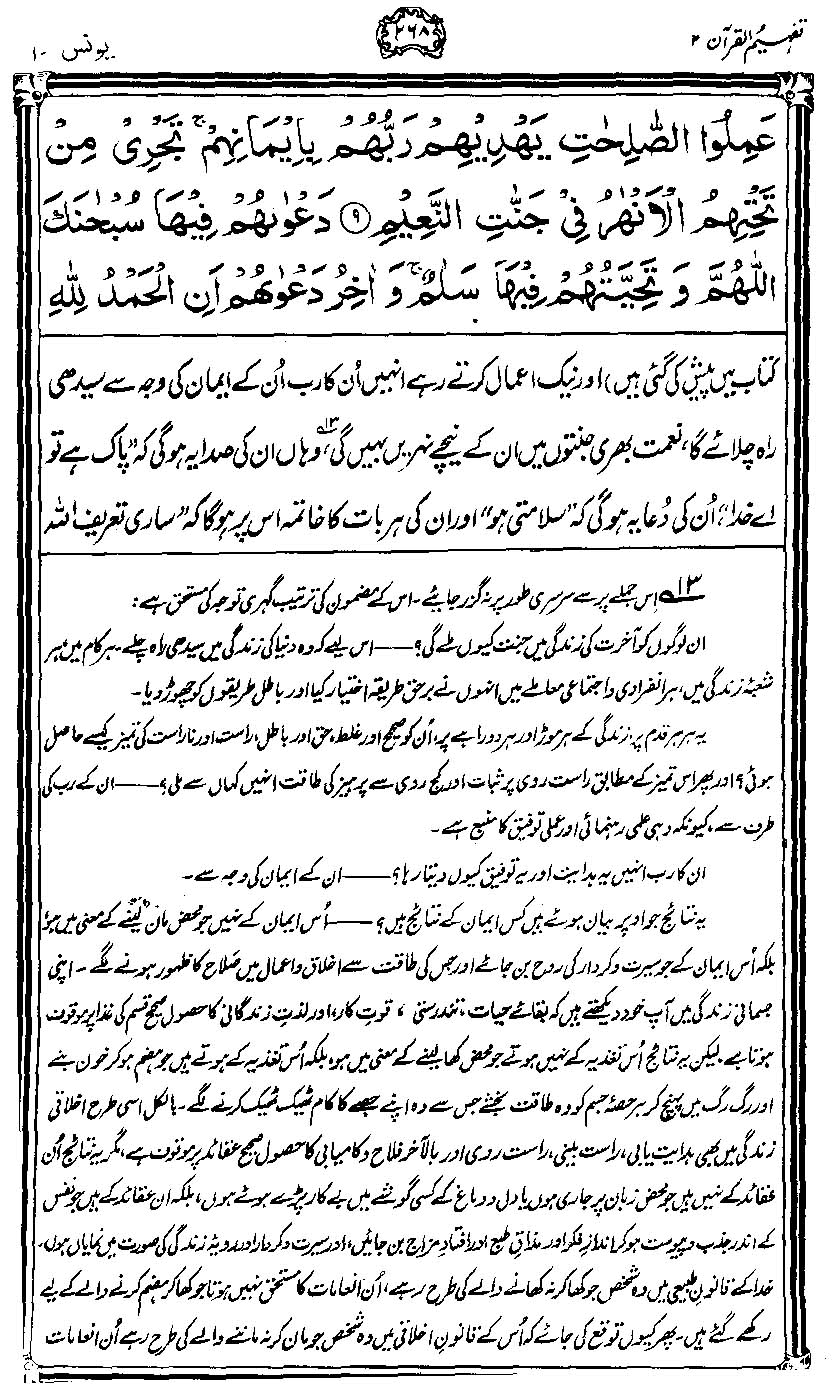 تفہیم القرآن ۲
۲۶۸
یونس ۱۰
عَمِلُوا الصّٰلِحٰتِ يَهْدِيْهِمْ رَبُّهُمْ بِاِيْمَانِهِمْ ۚ تَجْرِيْ مِنْ
تَحْتِهِمُ الْاَنْهٰرُ فِيْ جَنّٰتِ النَّعِيْمِ ۹ دَعْوٰىهُمْ فِيْهَا سُبْحٰنَكَ
اللّٰهُمَّ وَ تَحِيَّتُهُمْ فِيْهَا سَلٰمٌ ۚ وَ اٰخِرُ دَعْوٰىهُمْ اَنِ الْحَمْدُ لِلّٰهِ
کتاب میں پیش کی گئی ہیں) اور نیک اعمال کرتے رہے انہیں اُن کا رب اُن کے ایمان کی وجہ سے سیدھی
راہ چلائے گا، نعمت بھری جنتوں میں ان کے نیچے نہریں بہیں گی،۱۳ وہاں ان کی صدا یہ ہوگی کہ ”پاک ہے تو
اے خدا“، اُن کی دُعا یہ ہوگی کہ ”سلامتی ہو“ اور ان کی ہر بات کا خاتمہ اس پر ہوگا کہ ”ساری تعریف اللہ
۱۳ اِس جملے پر سے سرسری طور پر نہ گزر جائیے۔ اس کے مضمون کی ترتیب گہری توجہ کی مستحق ہے:
ان لوگوں کو آخرت کی زندگی میں جنت کیوں ملے گی؟ —— اس لیے کہ وہ دنیا کی زندگی میں سیدھی راہ چلے۔ ہر کام میں، ہر
شعبۂ زندگی میں، ہر انفرادی و اجتماعی معاملے میں انہوں نے برحق طریقہ اختیار کیا اور باطل طریقوں کو چھوڑ دیا۔
یہ ہر ہر قدم پر، زندگی کے ہر موڑ اور ہر دوراہے پر، اُن کو صحیح اور غلط، حق اور باطل، راست اور ناراست کی تمیز کیسے حاصل
ہوئی؟ اور پھر اس تمیز کے مطابق راست روی پر ثبات اور کج روی سے پرہیز کی طاقت انہیں کہاں سے ملی؟ —— ان کے رب کی
طرف سے، کیونکہ وہی علمی رہنمائی اور عملی توفیق کا منبع ہے۔
ان کا رب انہیں یہ ہدایت اور یہ توفیق کیوں دیتا رہا؟ —— ان کے ایمان کی وجہ سے۔
یہ نتائج جو اوپر بیان ہوئے ہیں کس ایمان کے نتائج ہیں؟ —— اُس ایمان کے نہیں جو محض مان لینے کے معنی میں ہو،
بلکہ اُس ایمان کے جو سیرت و کردار کی روح بن جائے اور جس کی طاقت سے اخلاق و اعمال میں صلاح کا ظہور ہونے لگے۔ اپنی
جسمانی زندگی میں آپ خود دیکھتے ہیں کہ بقائے حیات، تندرستی، قوتِ کار، اور لذتِ زندگانی کا حصول صحیح قسم کی غذا پر موقوف
ہوتا ہے۔ لیکن یہ نتائج اُس تغذیہ کے نہیں ہوتے جو محض کھا لینے کے معنی میں ہو، بلکہ اُس تغذیہ کے ہوتے ہیں جو ہضم ہو کر خون بنے
اور رگ رگ میں پہنچ کر ہر حصۂ جسم کو وہ طاقت بخشے جس سے وہ اپنے حصے کا کام ٹھیک ٹھیک کرنے لگے۔ بالکل اسی طرح اخلاقی
زندگی میں بھی ہدایت یابی، راست بینی، راست روی اور بالآخر فلاح و کامیابی کا حصول صحیح عقائد پر موقوف ہے، مگر یہ نتائج اُن
عقائد کے نہیں ہیں جو محض زبان پر جاری ہوں یا دل و دماغ کے کسی گوشے میں بے کار پڑے ہوئے ہوں، بلکہ ان عقائد کے ہیں جو نفس
کے اندر جذب و پیوست ہو کر اندازِ فکر اور مذاقِ طبع اور افتادِ مزاج بن جائیں، اور سیرت و کردار اور رویۂ زندگی کی صورت میں نمایاں ہوں۔
خدا کے قانونِ طبیعی میں وہ شخص جو کھا کر نہ کھانے والے کی طرح رہے، اُن انعامات کا مستحق نہیں ہوتا جو کھا کر ہضم کرنے والے کے لیے
رکھے گئے ہیں۔ پھر کیوں توقع کی جائے کہ اُس کے قانونِ اخلاقی میں وہ شخص جو مان کر نہ ماننے والے کی طرح رہے اُن انعامات